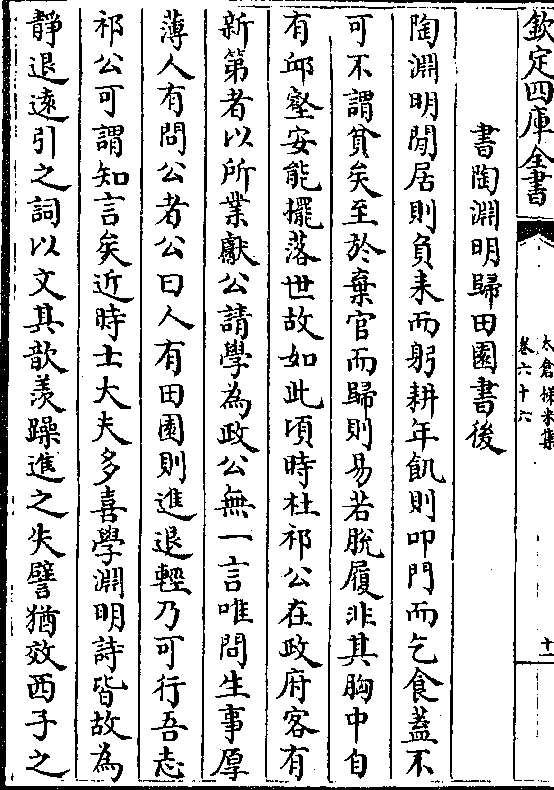 欽定四庫全書
太倉稊米集
卷六十六
十
書陶淵明歸田園書後
陶淵明閒居則負耒而躬耕年飢則叩門而乞食蓋不
可不謂貧矣至於棄官而歸則易若脫屨非其胸中自
有邱壑安能擺落世故如此頃時杜祁公在政府客有
新第者以所業獻公請學為政公無一言唯問生事厚
薄人有問公者公曰人有田園則進退輕乃可行吾志
祁公可謂知言矣近時士大夫多喜學淵明詩皆故為
靜退遠引之詞以文其歆羨躁進之失譬猶效西子之